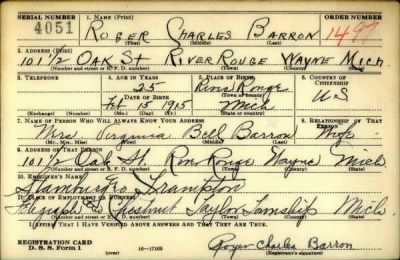 SERIAL NUMBER 1. NAME (Print) ORDER NUMBER
4051 ROGER CHARLES BARRON 1497
(First) (Middle) (Last)
2. ADDRESS (Print)
101 1/2 OAK St RIVER ROUGE WAYNE MICH.
(Number and street or R. F. D. number) (Town) (County) (State)
3. TELEPHONE 4. AGE IN YEARS 5. PLACE OF BIRTH 6. COUNTRY OF CITIZENSHIP
25 River Rouge
DATE OF BIRTH (Town or county)
Feb 15 1915 Mich U S
(Exchange) (Number) (Mo.) (Day) (Yr.) (State or country)
7. NAME OF PERSON WHO WILL ALWAYS KNOW YOUR ADDRESS 8. RELATIONSHIP OF THAT PERSON
Mrs. Virginia Bell Barron Wife
(Mr., Mrs., Miss) (First) (Middle) (Last)
9. ADDRESS OF THAT PERSON
101 1/2 Oak St. River Rouge Wayne Mich
(Number and street or R. F. D. number) (Town) (County) (State)
10. EMPLOYER'S NAME
Frampton
11. PLACE OF EMPLOYMENT OR BUSINESS
Telegraph & Chestnut Taylor Township Mich
(Number and street or R. F. D. number) (Town) (County) (State)
I AFFIRM THAT I HAVE VERIFIED ABOVE ANSWERS AND THAT THEY ARE TRUE.
REGISTRATION CARD
D. S. S. Form 1 16—17105 Roger Charles Barron
(Registrant's signature)